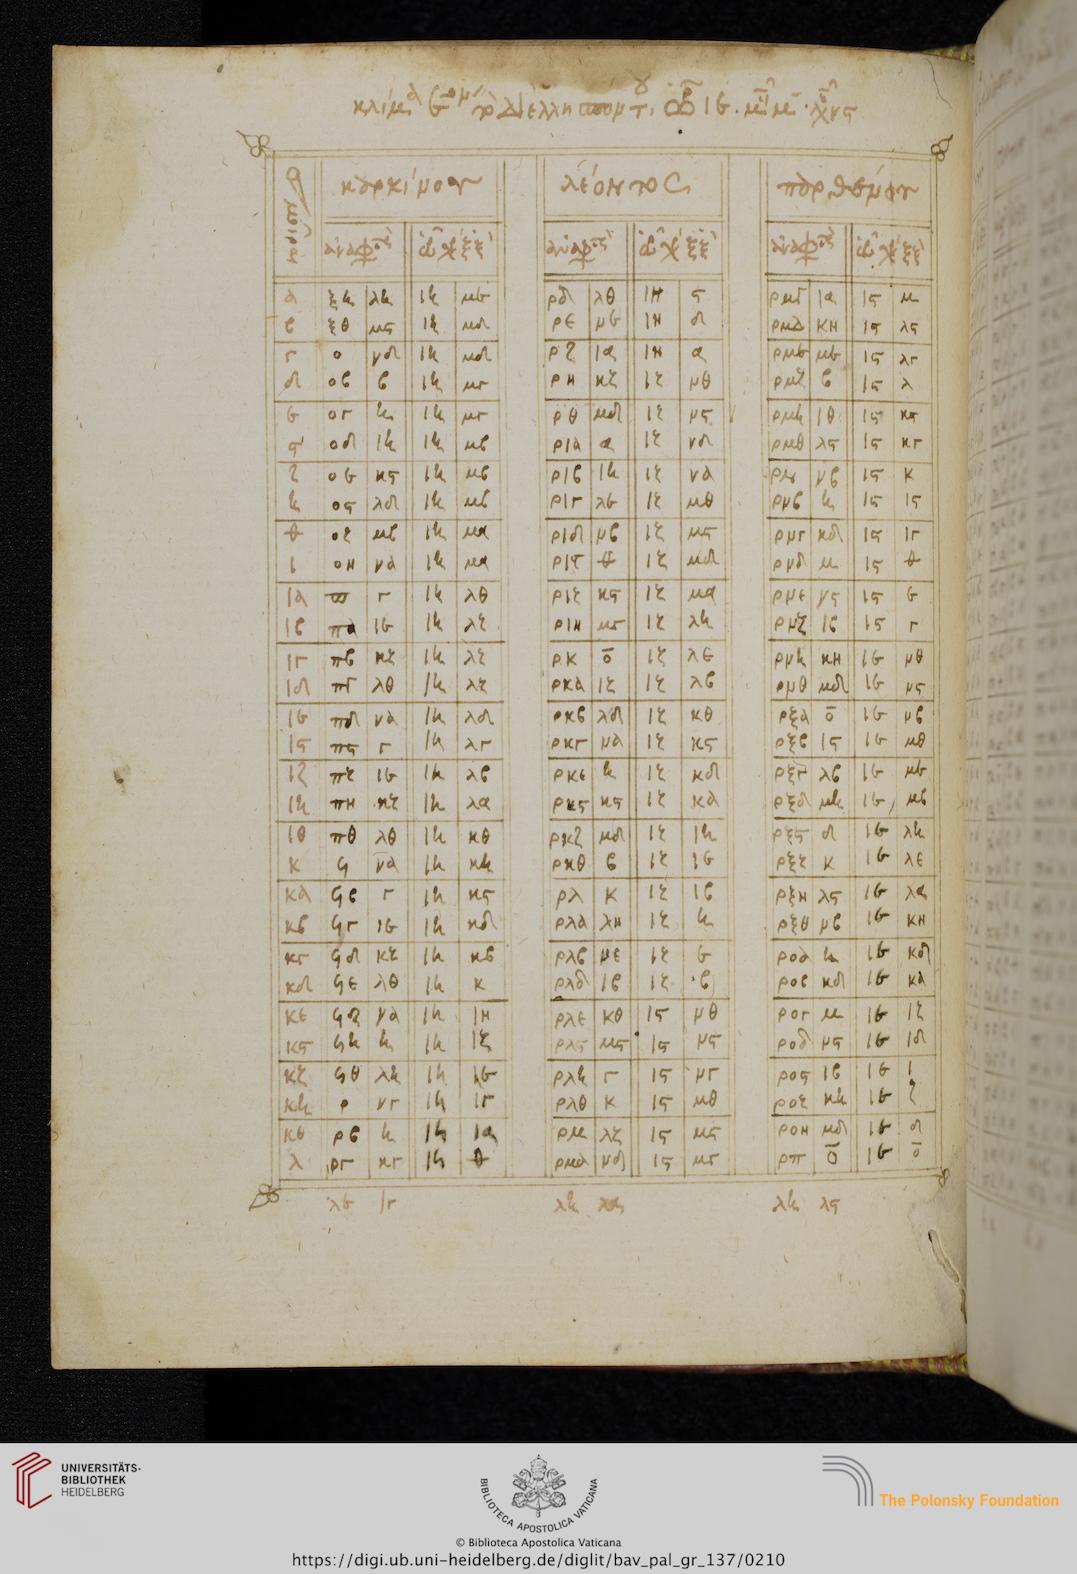 καρκίνου λέοντος παρθένου
α ξη λη ιη με ρδ λθ ιη ϛ ρμγ ια ιϛ μ
β ξθ μϛ ιη μδ ρε νε ιη δ ρμδ κη ιϛ λϛ
γ ο νδ ιη μδ ρζ ια ιη α ρμε με ιϛ λγ
δ οβ β ιη μγ ρη κζ ιζ νθ ρμζ β ιϛ λ
ε ογ η ιη μγ ρθ μδ ιζ νϛ ρμη ιθ ιϛ κϛ
ϛ οδ ιη ιη μβ ρια α ιζ νδ ρμθ λϛ ιϛ κγ
ζ οε κϛ ιη μβ ριβ ιη ιζ να ρν νβ ιϛ κ
η οϛ λδ ιη μβ ριγ λε ιζ μθ ρνβ η ιϛ ιϛ
θ οζ μβ ιη μα ριδ νβ ιζ μϛ ρνγ κδ ιϛ ιγ
ι οη να ιη μα ριϛ θ ιζ μδ ρνδ μ ιϛ θ
ια π γ ιη λθ ριζ κϛ ιζ μα ρνε νϛ ιϛ ε
ιβ πα ιε ιη λζ ριη μγ ιζ λη ρνζ ιβ ιϛ γ
ιγ πβ κζ ιη λζ ρκ ο ιζ λε ρνη κη ιε νθ
ιδ πγ λθ ιη λζ ρκα ιζ ιζ λβ ρνθ μδ ιε νϛ
ιε πδ να ιη λδ ρκβ λδ ιζ κθ ρξα ο ιε νβ
ιϛ πϛ γ ιη λγ ρκγ να ιζ κϛ ρξβ ιϛ ιε μθ
ιζ πζ ιε ιη λβ ρκε η ιζ κδ ρξγ λβ ιε με
ιη πη κζ ιη λα ρκϛ κϛ ιζ κα ρξδ μη ιε μβ
ιθ πθ λθ ιη κθ ρκζ μδ ιζ ιη ρξϛ δ ιε λη
κ ϟ να ιη κη ρκθ β ιζ ιε ρξζ κ ιε λε
κα ϟβ γ ιη κϛ ρλ κ ιζ ιβ ρξη λϛ ιε λα
κβ ϟγ ιε ιη κδ ρλα λη ιζ η ρξθ νβ ιε κη
κγ ϟδ κζ ιη κβ ρλβ νε ιζ ε ροα η ιε κδ
κδ ϟε λθ ιη κ ρλδ ιβ ιζ β ροβ κδ ιε κα
κε ϟϛ να ιη ιη ρλε κθ ιϛ νθ ρογ μ ιε ιζ
κϛ ϟη η ιη ιζ ρλϛ μϛ ιϛ νϛ ροδ νϛ ιε ιδ
κζ ϟθ λη ιη ιε ρλη γ ιϛ νγ ροϛ ιβ ιε ι
κη ρ νγ ιη ιγ ρλθ κ ιϛ μθ ροζ κη ιε ζ
κθ ρβ η ιη ια ρμ λζ ιϛ μϛ ροη μδ ιε δ
λ ργ κγ ιη θ ρμα νδ ιϛ μγ ρπ ο ιε ο
λε ιγ λη λη λϛ
UNIVERSITÄTS-
BIBLIOTHEK
HEIDELBERG
BIBLIOTECA APOSTOLICA VATICANA
The Polonsky Foundation
© Biblioteca Apostolica Vaticana
https://digi.ub.uni-heidelberg.de/diglit/bav_pal_gr_137/0210